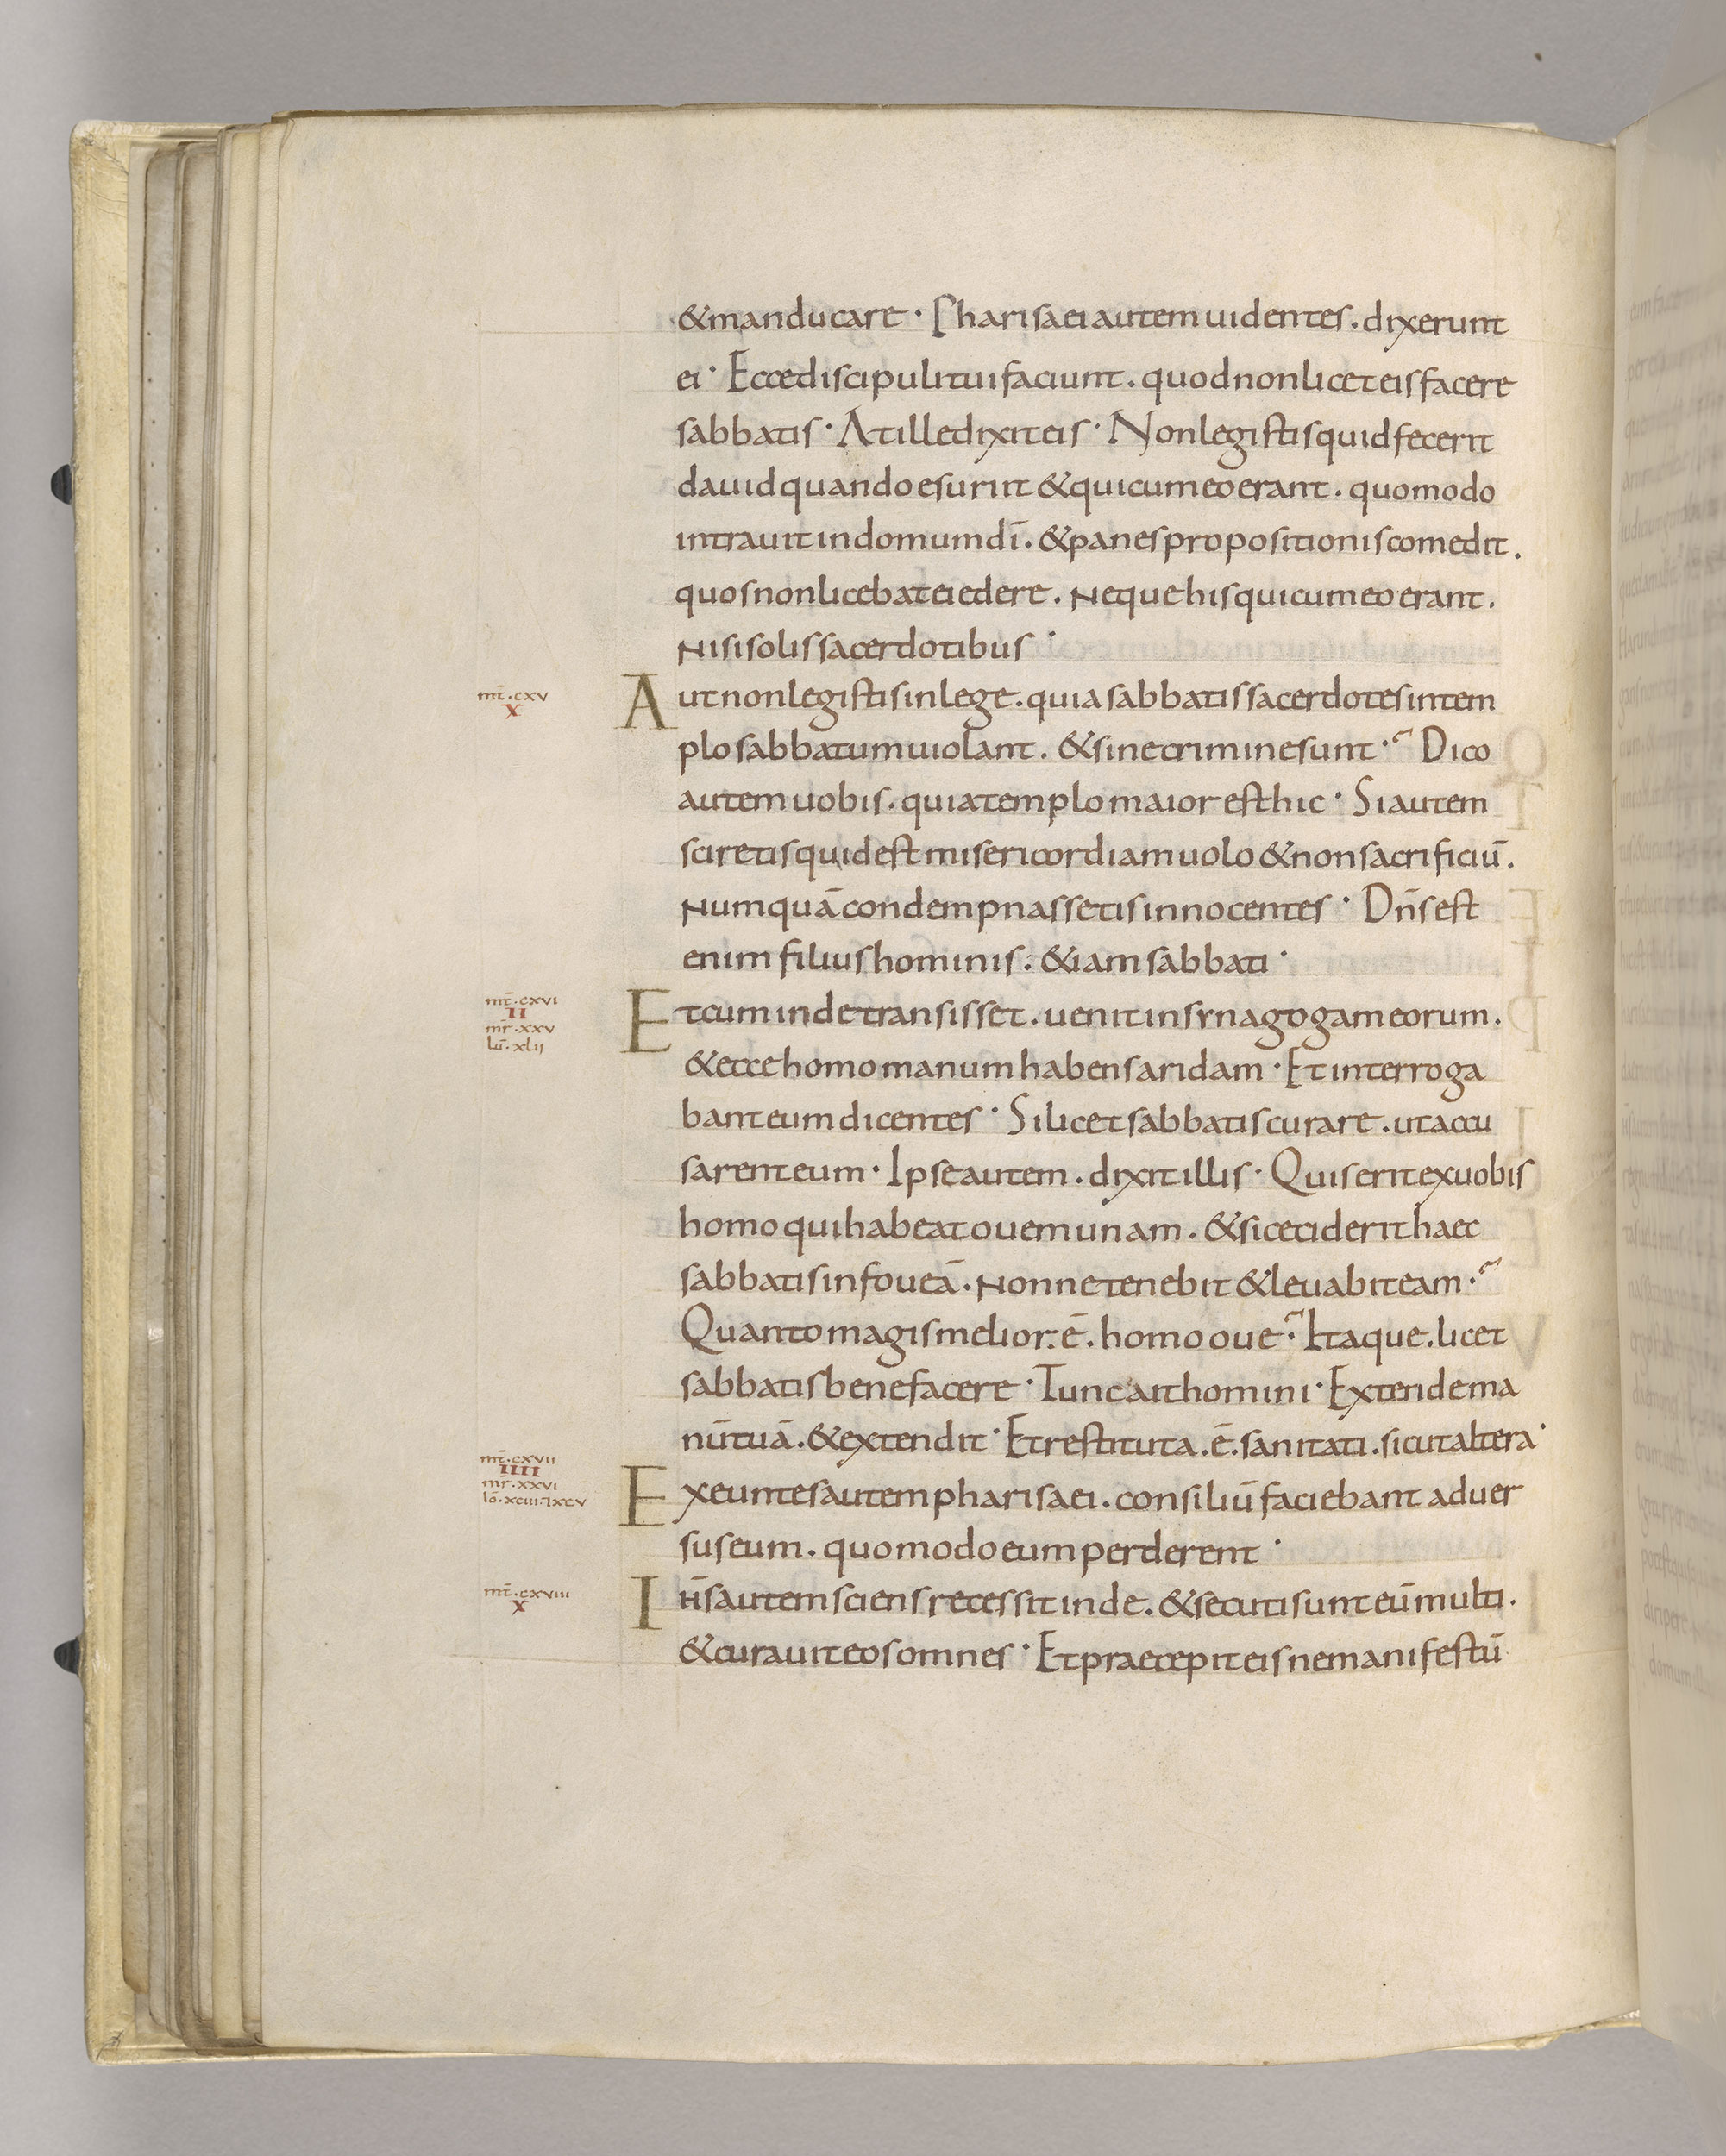 &manducare · Pharisaei autem uidentes . dixerunt
ei · Ecce discipuli tui faciunt . quod non licet eis facere
sabbatis · At ille dixit eis · Non legistis quid fecerit
dauid quando esuriit & qui cum eo erant . quomodo
intrauit in domum dī . & panes propositionis comedit .
quos non licebat ei edere . Neque his qui cum eo erant .
Nisi solis sacerdotibus ·
mt̄ . cxv
x
Aut non legistis in lege . quia sabbatis sacerdotes in tem
plo sabbatum uiolant . & sine crimine sunt ·~ Dico
autem uobis . quia templo maior est hic · Si autem
sciretis quid est misericordiam uolo & non sacrificiū .
Numquā condempnassetis innocentes · Dn̄s est
enim filius hominis . &iam sabbati ·
mt̄ . cxvi
II
mr̄ . xxv
lū . xlij
Et cum inde transisset . uenit in synagogam eorum .
& ecce homo manum habens aridam · Et interroga
bant eum dicentes · Si licet sabbatis curare . ut accu
sarent eum · Ipse autem . dixit illis · Quis erit ex uobis
homo qui habeat ouem unam . & si ceciderit haec
sabbatis in foueā . Nonne tenebit & leuabit eam ·~
Quanto magis melior . ē . homo oue ·~ Itaque . licet
sabbatis benefacere · Tunc ait homini · Extende ma
nū tuā . & extendit · Et restituta . ē . sanitati . sicut altera ·
mt̄ . cxvii
IIII
mr̄ . xxvi
Io̅ . xciii ⁊ xcv
Exeuntes autem pharisaei . consiliū faciebant aduer
sus eum . quomodo eum perderent ·
mt̄ . cxviii
x
Ih̄s autem sciens recessit inde . & secuti sunt eū multi .
& curauit eos omnes · Et praecepit eis ne manifestū